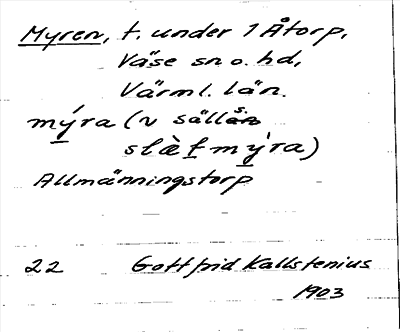 Myren, t. under 1 Åtorp,
Väse sn o. hd,
Värml. län.
mýra (v sälls.
slæ̀tmýra)
Allmänningstorp
22 Gottfrid Kallstenius
1903